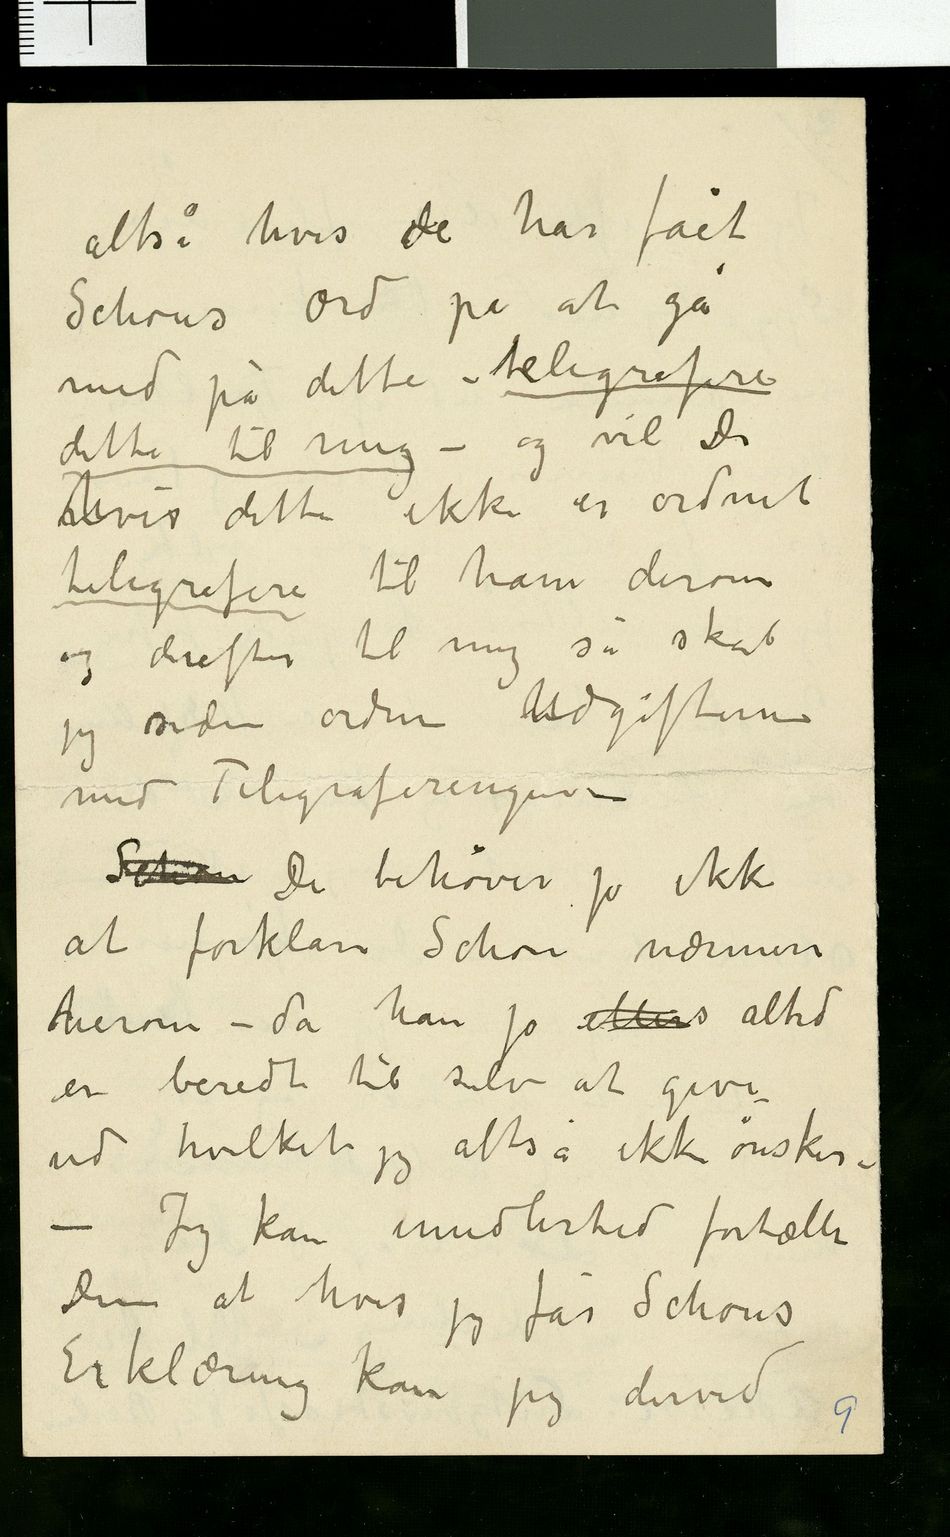 altså hvis De har fåct
Schous ord på at gå
med på dette – telegrafere
dette til mig – og vil De
hvis dette ikke er ordnet
telegrafere til ham derom
og derefter til mig så skal
jeg siden ordne Udgifterne
med Telegraferingen –
Schou De behøver jo ikke
at forklare Schou nærmere
herom – da han jo ellers altid
er beredt til selv at give
ud hvilket jeg altså ikke ønsker –
– Jeg kan imidlertid fortælle
Dem at hvis jeg får Schous
Erklæring kan jeg derved
9